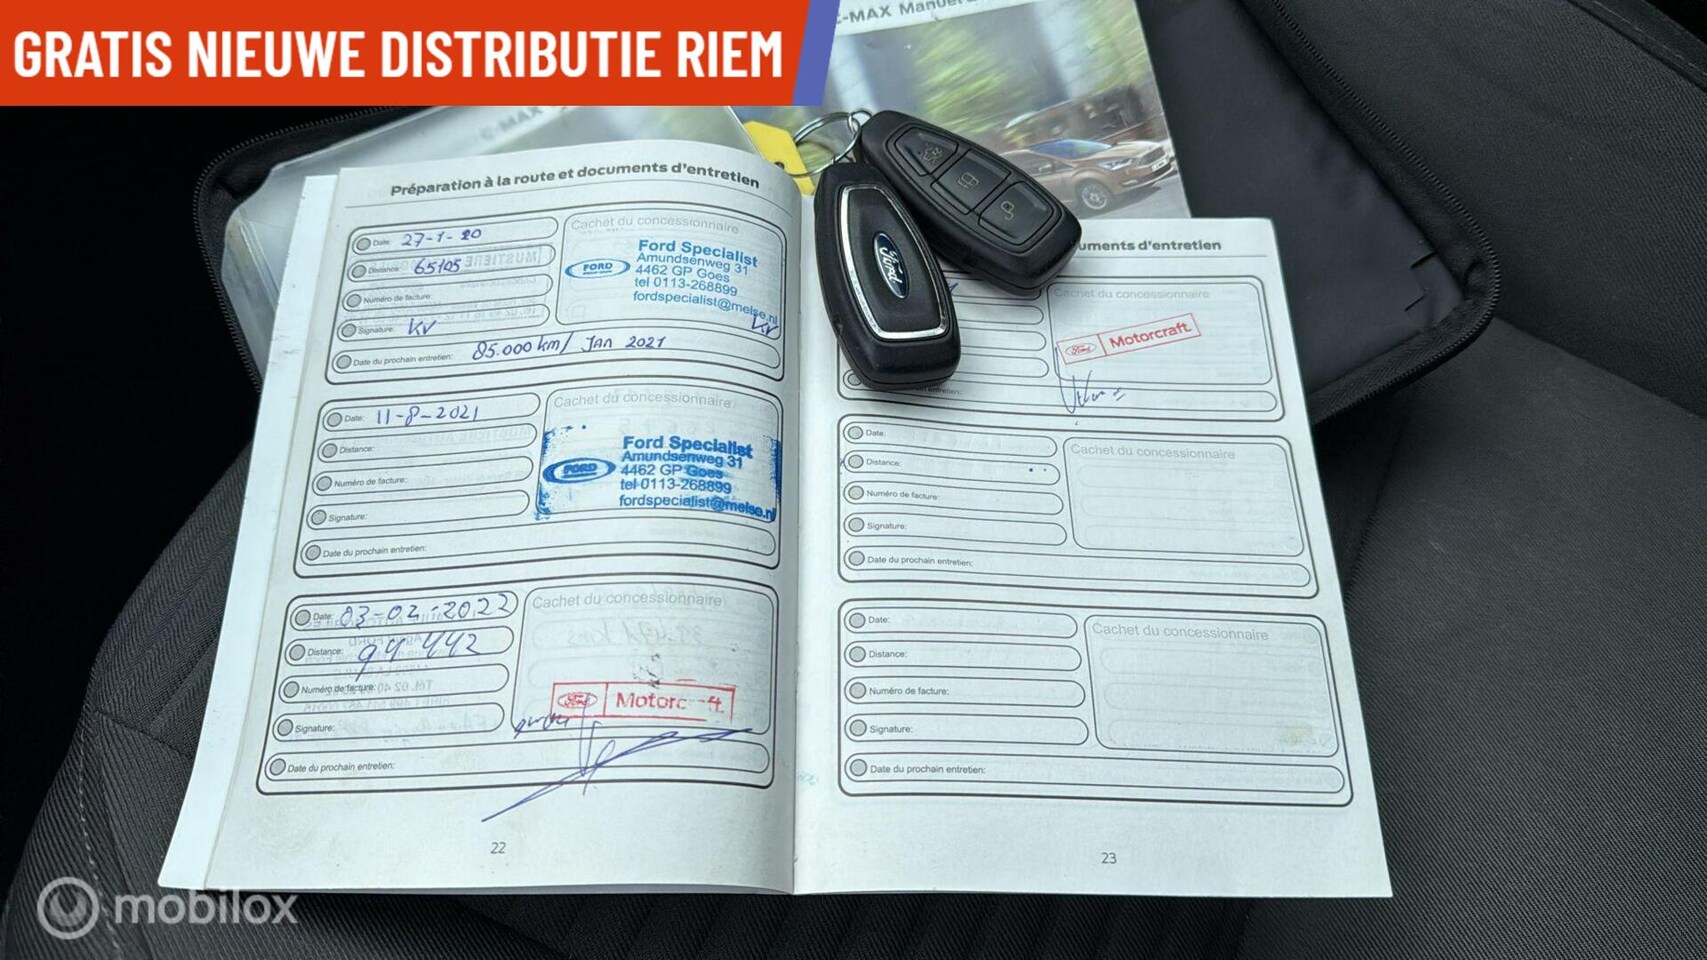 GRATIS NIEUWE DISTRIBUTIE RIEM
C-MAX
C-MAX Manuel
Préparation à la route et documents d'entretien
Date: 27-1-20
Distance: 65105
Numéro de facture:
Signature: KV
Date du prochain entretien: 85.000 km/ Jan 2021
Cachet du concessionnaire
FORD
Ford Specialist
Amundsenweg 31
4462 GP Goes
tel 0113-268899
fordspecialist@melse.nl
KV
Date: 11-8-2021
Distance:
Numéro de facture:
Signature:
Date du prochain entretien:
Cachet du concessionnaire
FORD
Ford Specialist
Amundsenweg 31
4462 GP Goes
tel 0113-268899
fordspecialist@melse.nl
Date: 03-02-2022
Distance: 94 442
Numéro de facture:
Signature:
Date du prochain entretien:
Cachet du concessionnaire
Ford Motorc ft
22
Ford
uments d'entretien
Cachet du concessionnaire
Ford Motorcraft
entretien:
Date:
Distance:
Numéro de facture:
Signature:
Date du prochain entretien:
Cachet du concessionnaire
Date:
Distance:
Numéro de facture:
Signature:
Date du prochain entretien:
Cachet du concessionnaire
23
mobilox